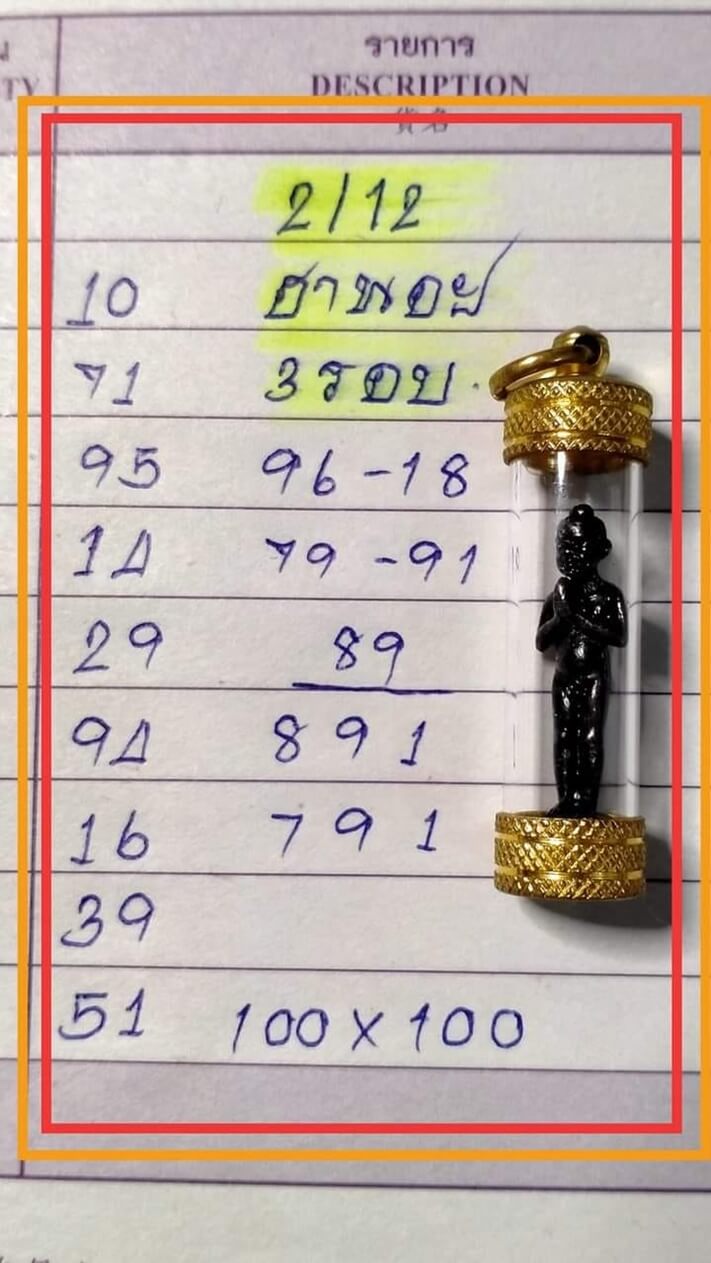 รายการ
TY DESCRIPTION
貨名
2/12
10 ฮานอย
71 3รอบ.
95 96-18
14 79-91
29 89
94 891
16 791
39
51 100x100